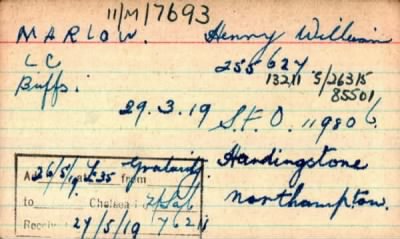 11/M/7693
MARLOW. Henry William
LC 255627
Buffs. 13211 5/26315
85501
29.3.19 S.F.O. 11980
26/5/19 £35 Gratuity. Hardingstone
from
to Chelsea Northampton.
27/5/19 76211